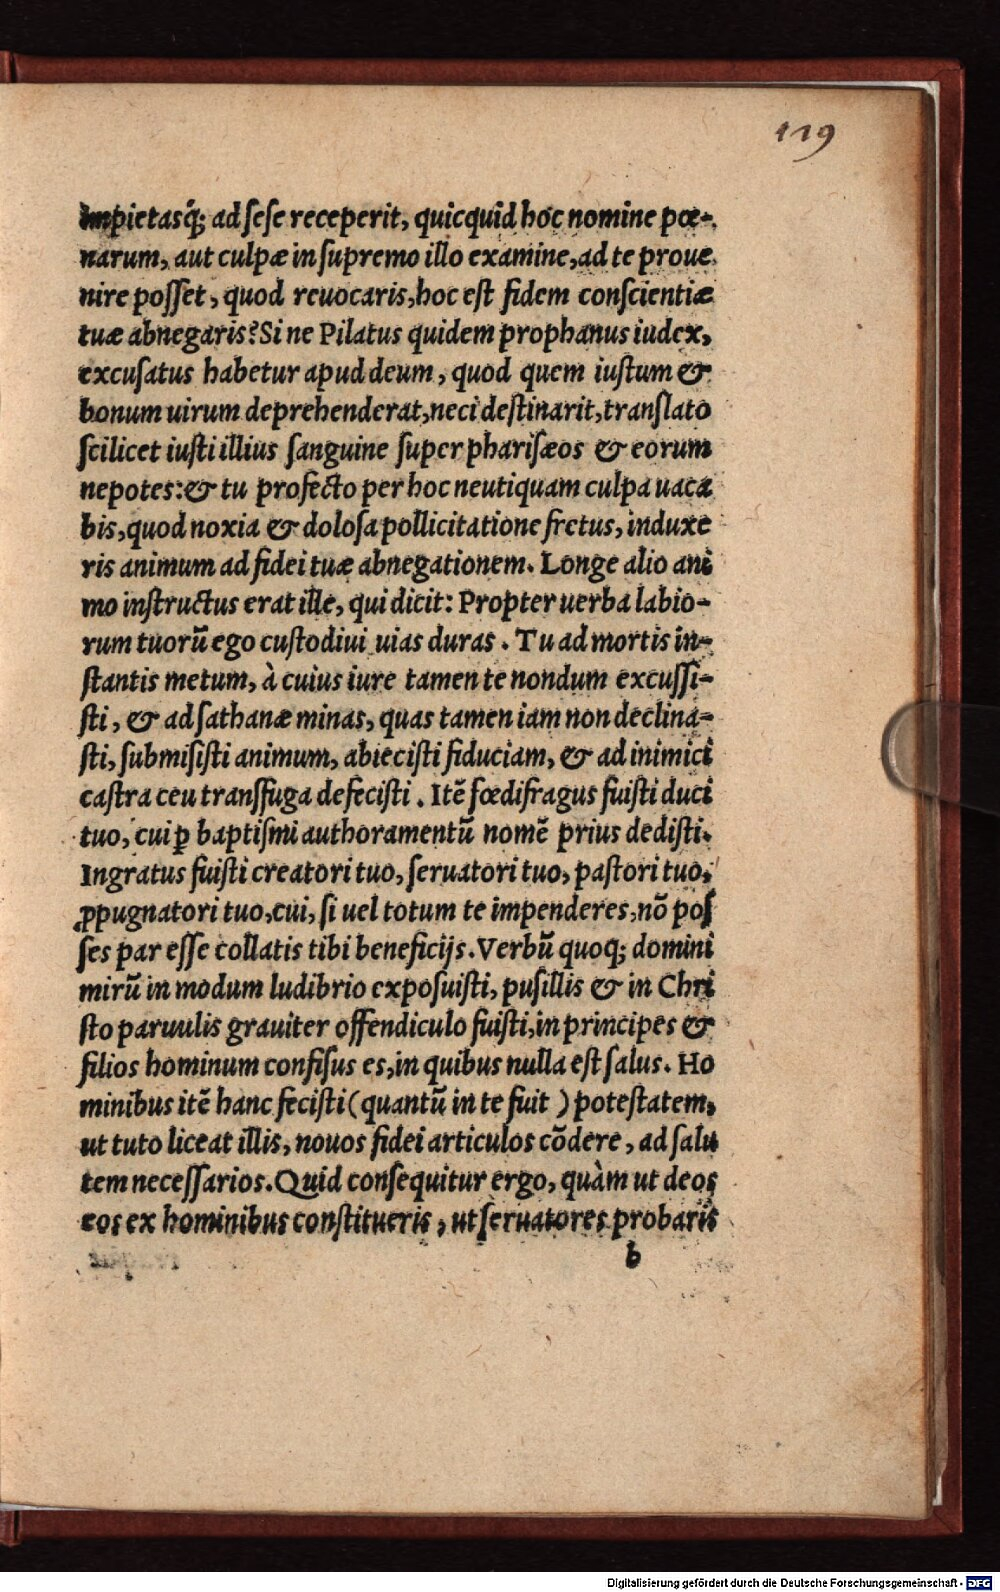 119
impietasq́; ad ſeſe receperit, quicquid hoc nomine pœ-
narum, aut culpæ in ſupremo illo examine, ad te proue
nire poſſet, quod reuocaris, hoc eſt fidem conſcientiæ
tuæ abnegaris? Si ne Pilatus quidem prophanus iudex,
excuſatus habetur apud deum, quod quem iuſtum &
bonum uirum deprehenderat, neci deſtinarit, tranſlato
ſcilicet iuſti illius ſanguine ſuper phariſæos & eorum
nepotes: & tu profecto per hoc neutiquam culpa uaca
bis, quod noxia & doloſa pollicitatione fretus, induxe
ris animum ad fidei tuæ abnegationem. Longe alio ani
mo inſtructus erat ille, qui dicit: Propter uerba labio-
rum tuorū ego cuſtodiui uias duras. Tu ad mortis in-
ſtantis metum, à cuius iure tamen te nondum excuſſi-
ſti, & ad ſathanæ minas, quas tamen iam non declina-
ſti, ſubmiſiſti animum, abieciſti fiduciam, & ad inimici
caſtra ceu tranſfuga defeciſti. Itē fœdifragus fuiſti duci
tuo, cui ꝑ baptiſmi authoramentū nomē prius dediſti.
Ingratus fuiſti creatori tuo, ſeruatori tuo, paſtori tuo,
ꝓpugnatori tuo, cui, ſi uel totum te impenderes, nō poſ
ſes par eſſe collatis tibi beneficijs. Verbū quoq; domini
mirū in modum ludibrio expoſuiſti, puſillis & in Chri
ſto paruulis grauiter offendiculo fuiſti, in principes &
filios hominum confiſus es, in quibus nulla eſt ſalus. Ho
minibus itē hanc feciſti (quantū in te fuit) poteſtatem,
ut tuto liceat illis, nouos fidei articulos cōdere, ad ſalu
tem neceſſarios. Quid conſequitur ergo, quàm ut deos
eos ex hominibus conſtitueris, ut ſeruatores probaris
b
Digitalisierung gefördert durch die Deutsche Forschungsgemeinschaft - DFG